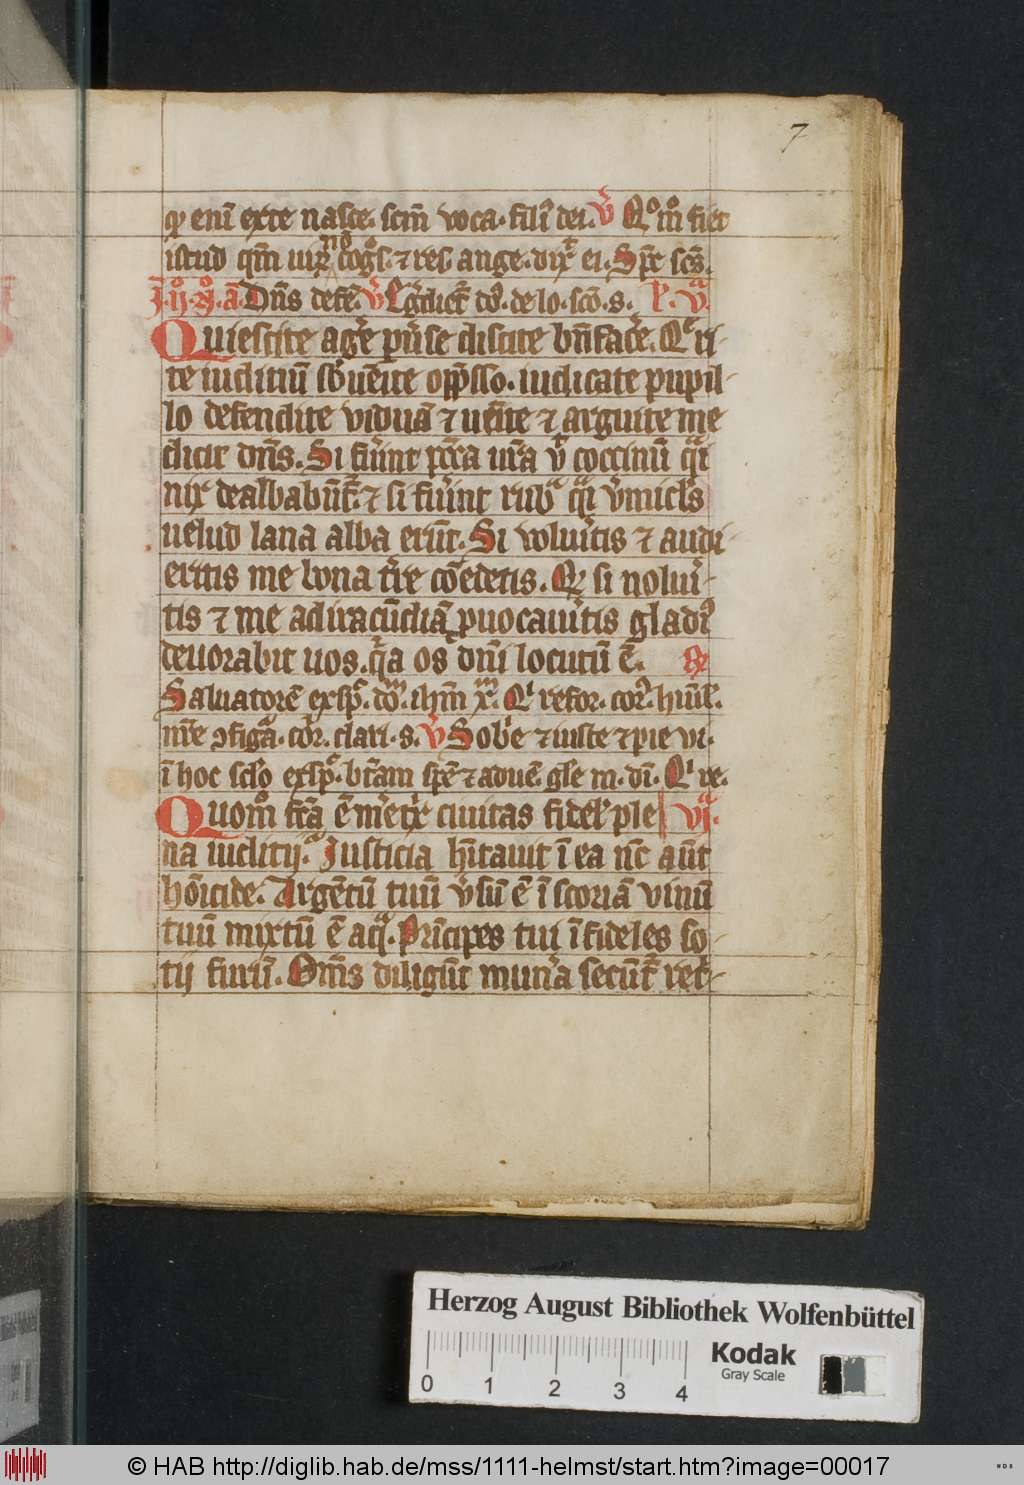 7
qͥ eni exte nasce. scm̄ voca. filꝰ dei. v̓ Qͦmͦ fiet
istud qm̄ uiꝝ nō cogͦs. ⁊ res ange. dixͭ ei. Spē scs̄.
Dn̄s defē. v̓ dō. de lo. scō. s.
Quiescite agͤe puͤse discite bn̄facͤe. Qͤri
te iuditiū sb̓uēite opp̄sso. iudicate pupil-
lo defendite viduā ⁊ uēite ⁊ arguite me
dicit dn̄s. Si fiu̓int pc̄ca ur̄a vͭ coccinū qͣi
nix dealbabūt̓. ⁊ si fiu̓int rubͣ qͣi v̓micl̓s
uelud lana alba erūt. Si volu̓itis ⁊ audi-
eritis me bona tr̓e cōedetis. Qꝫ si nolu̓i-
tis ⁊ me adiracūdiā ꝓuocau̓itis gladiꝰ
devorabit vos. qͥa os dn̄i locutū ē. ℟
Saluatorē exspͨ. doͫ. ihm̄ xͫ. Qͥ refor. corꝰ. humil̓.
nr̄e ꝯfigͣ. cor̓. clari. s. v̓ Sobͥe ⁊ iuste ⁊ pie vi.
ī hoc sclo exspͨ. bt̄am spē ⁊ aduē. gl̓e m. dī. Qͥ re.
Quomͦ fc̄a ē m̓etͥx ciuitas fidel̓ ple vıͣ.
na iuditij.ͣ Justicia hītauit ī ea nc̄ aūt
hōicide. Argētū tuū v̓sū ē ī scoriā vinū
tuū mixtū ē aqͣ. Prīcipes tui īfideles so-
tij furū. Om̄s diligūt mun̓a secūt̓ ret̓-
Herzog August Bibliothek Wolfenbüttel
Kodak
Gray Scale
0 1 2 3 4
© HAB http://diglib.hab.de/mss/1111-helmst/start.htm?image=00017